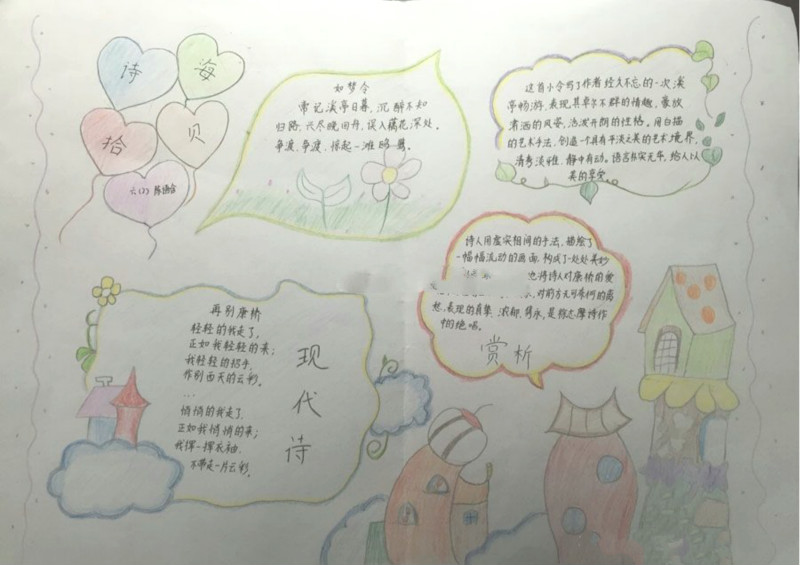 诗 海
拾 贝
六(2)
如梦令
常记溪亭日暮,沉醉不知
归路,兴尽晚回舟,误入藕花深处。
争渡,争渡,惊起一滩鸥鹭。
这首小令写了作者经久不忘的一次溪
亭畅游,表现其卓尔不群的情趣,豪放
潇洒的风姿,活泼开朗的性格。用白描
的艺术手法,创造一个具有平淡之美的艺术境界,
清秀淡雅,静中有动,语言朴实无华,给人以
美的享受。
诗人用虚实相间的手法,描绘了
一幅幅流动的画面,构成了一处处美妙
也将诗人对康桥的爱
对前方无可奈何的离
愁,表现的真挚,浓郁,隽永,是徐志摩诗作
中的绝唱。
赏析
再别康桥
轻轻的我走了,
正如我轻轻的来;
我轻轻的招手,
作别西天的云彩。
...
悄悄的我走了,
正如我悄悄的来;
我挥一挥衣袖,
不带走一片云彩。
现代诗